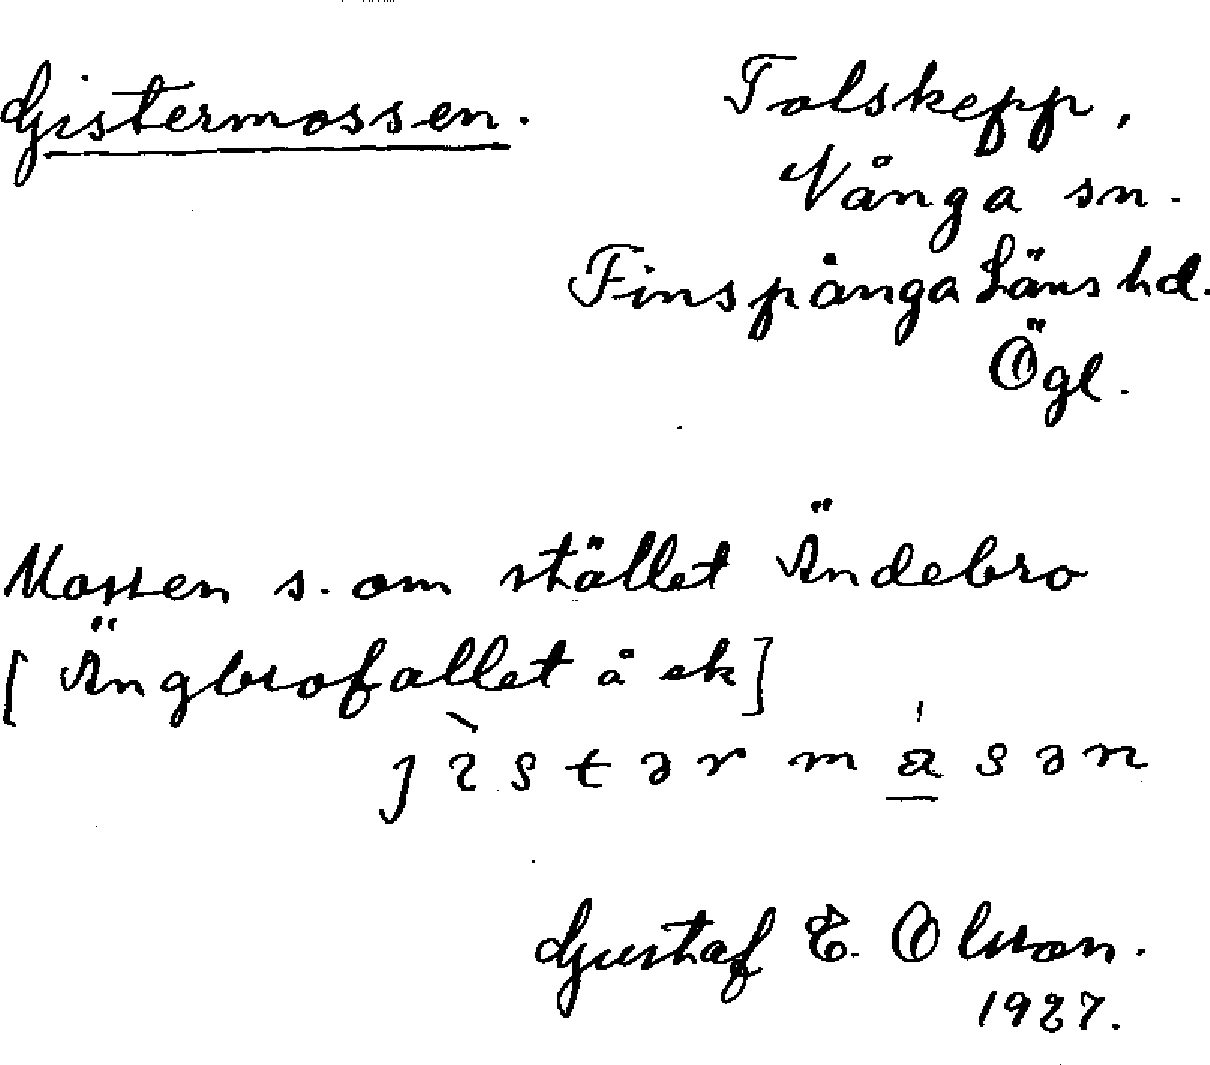 Gistermossen.
Tolskepp,
Vånga sn.
Finspånga Läns hd.
Ögl.
Mossen s. om stället Ändebro
[Ängbrofallet å ek]
jìstərmásən
Gustaf E. Olsson.
1927.